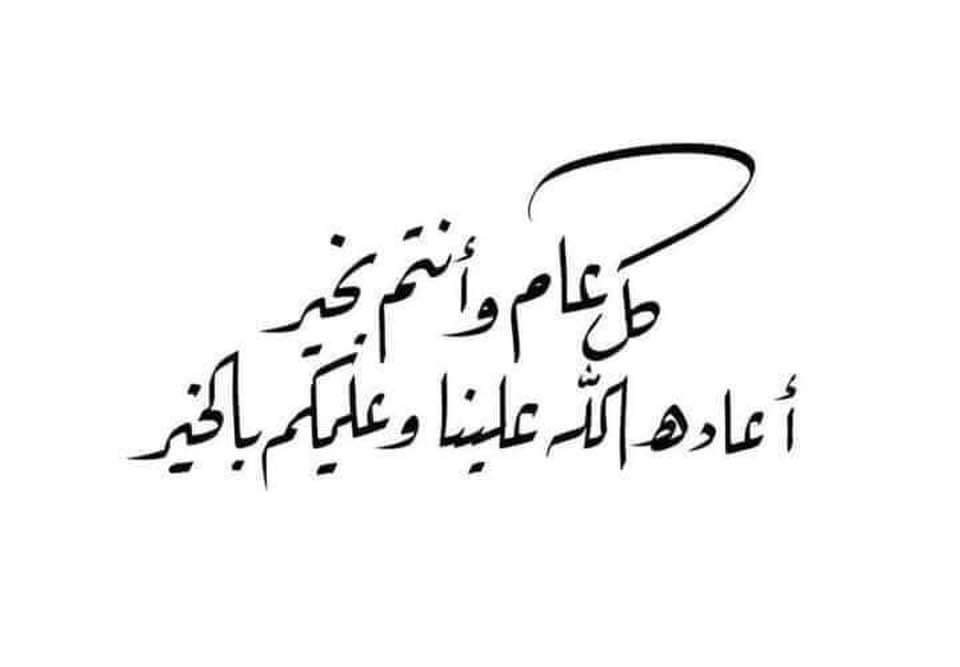 كل عام وأنتم بخير
أعاده الله علينا وعليكم بالخير